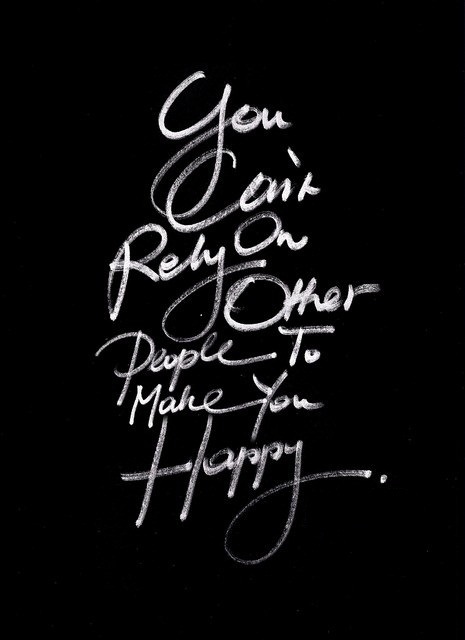 You
Can't
Rely On
Other
People To
Make You
Happy.